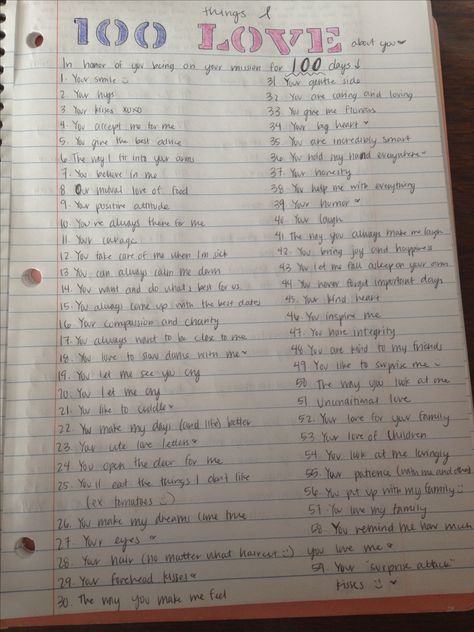 things I
100 LOVE about you ♥
In honor of you being on your mission for 100 days ↓
1. Your smile :)
2. Your hugs
3. Your kisses xoxo
4. You accept me for me
5. You give the best advice
6 The way I fit into your arms
7. You believe in me
8 Our mutual love of food
9. Your positive attitude
10. You're always there for me
11. Your courage
12. You take care of me when I'm sick
13. You can always calm me down
14. You want and do what's best for us
15. You always come up with the best dates
16 Your compassion and charity
17. You always want to be close to me
18. You love to slow dance with me ♥
19. You let me see you cry
20. You let me cry
21. You like to cuddle ♥
22. You make my days (and life) better
23. Your cute love letters ♥
24 You open the door for me
25. You'll eat the things I don't like
(ex tomatoes :))
26. You make my dreams come true
27. Your eyes ♥
28. Your hair (no matter what haircut :))
29. Your forehead kisses ♥
30. The way you make me feel
31. Your gentle side
32. You are caring and loving
33. You give me flowers
34 Your big heart ♥
35. You are incredibly smart
36 You hold my hand everywhere ♥
37. Your honesty
38 You help me with everything
39 Your humor ♥
40 Your laugh
41 The way you always make me laugh
42. You bring joy and happiness
43. You let me fall asleep on your arms
44 You never forget important days
45. Your kind heart
46 You inspire me
47. You have integrity
48 You are kind to my friends
49 You like to surprise me :)
50 The way you look at me
51 Unconditional love
52. Your love for your family
53 Your love of children
54. You look at me lovingly
55. Your patience (with me and others)
56 You put up with my family :)
57 You love my family
58 You remind me how much
you love me ♥
59. Your "surprise attack"
kisses :) ♥